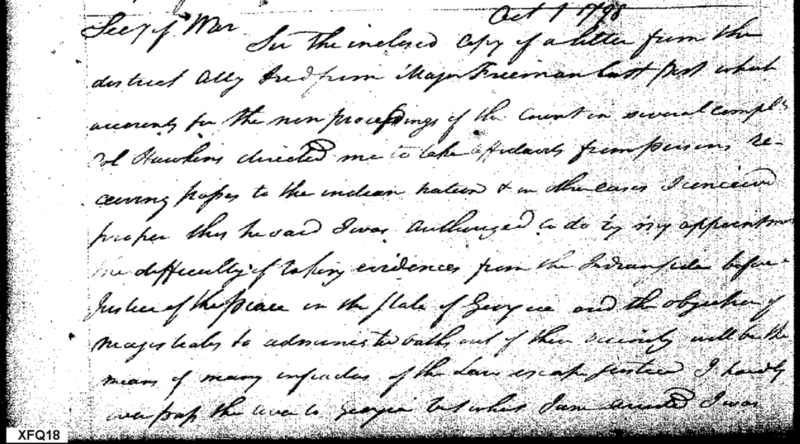 Oct 1 1798
Secy of War
Sir The inclosed Copy of a letter from the
district Atty Recd from Major Freeman last post what
accounts for the non proceedings of the Court in several complts
Col Hawkins directed me to take affidavits from persons re-
ceiving passes to the indian nation & in other cases I conceived
proper this he said I was authorized to do by my appointment
the difficulty of taking evidences from the Indian side before a
Justice of the peace in the State of Georgia and the objection of
magistrates to administer oaths out of their vicinity will be the
means of many infractors of the Law escape Justice I hardly
ever pass the river to Georgia but what I am arrested I was
XFQ18